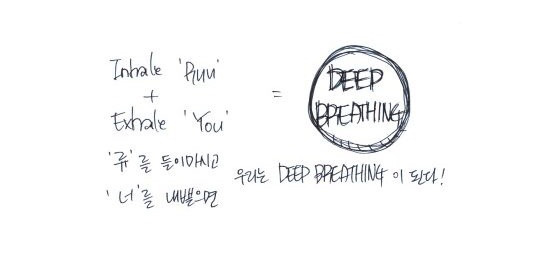 Inhale 'Ryu'
+
Exhale 'You'
=
DEEP
BREATHING
'류'를 들이마시고
'너'를 내뱉으면
우리는 DEEP BREATHING이 된다!